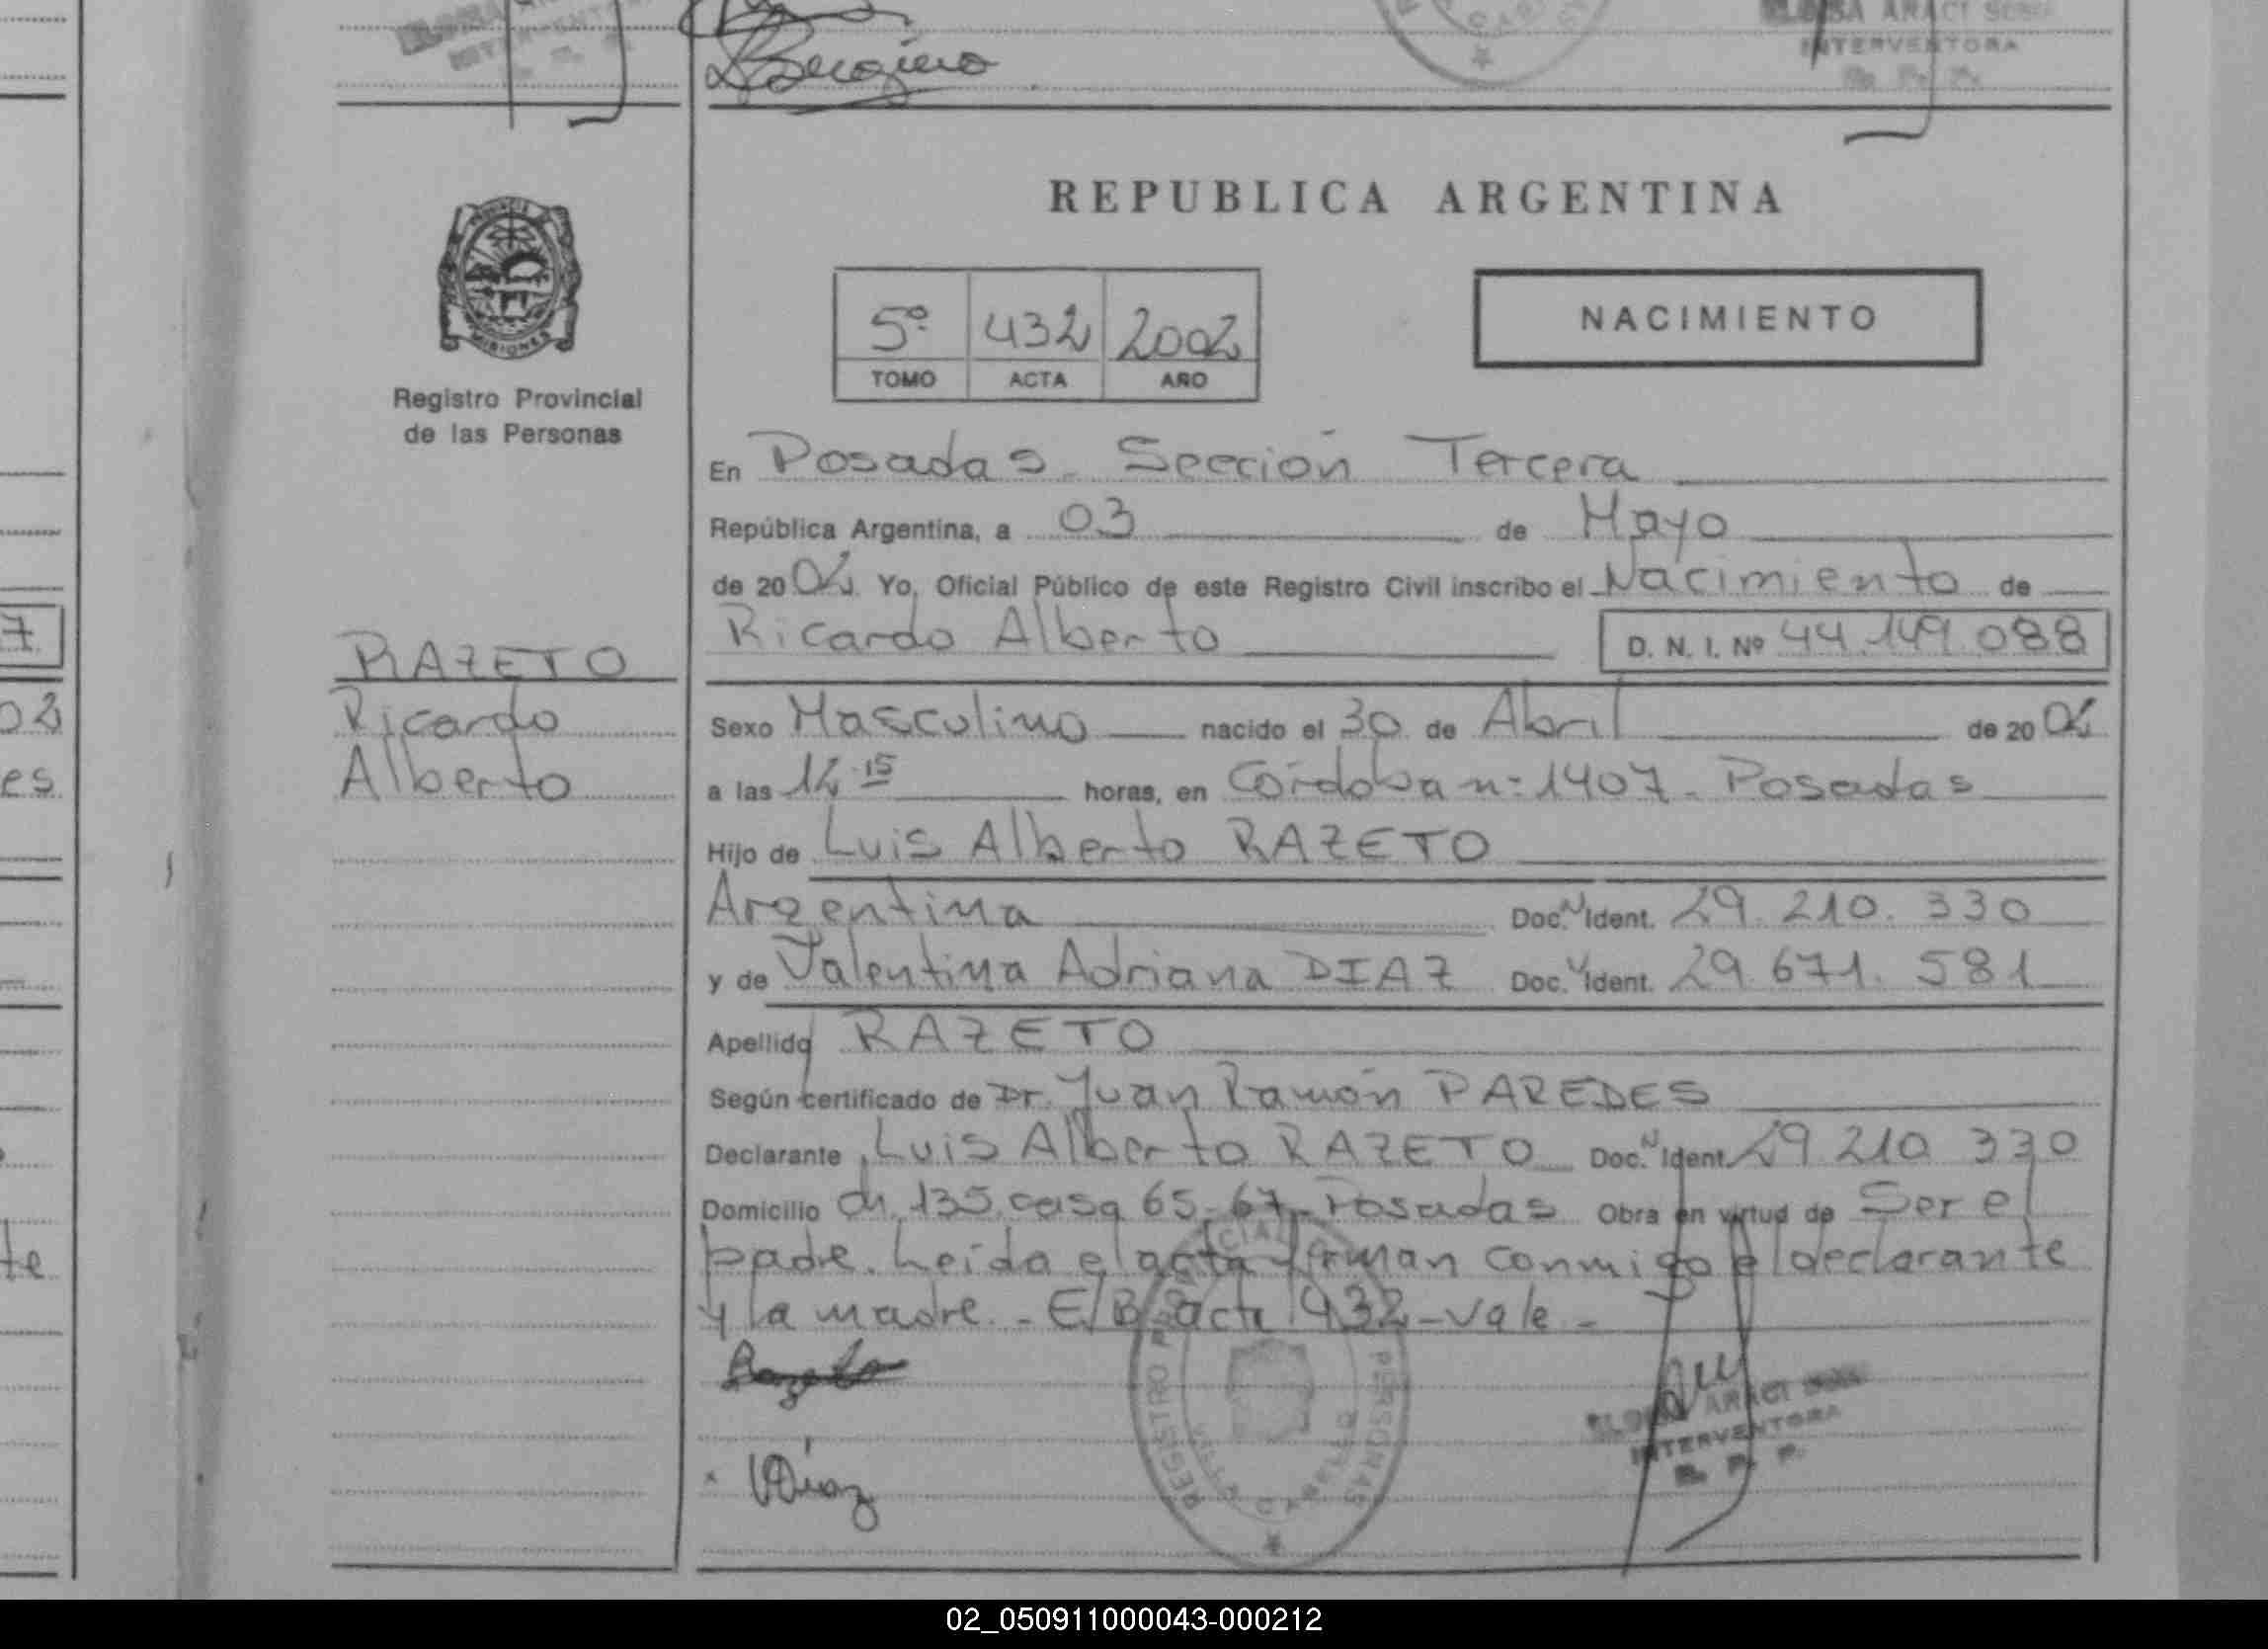 INTERVENTORA
INTERVENTORA
REPUBLICA ARGENTINA
PROVINCIA
MISIONES
5º 432 2002
TOMO ACTA AÑO
NACIMIENTO
Registro Provincial
de las Personas
En Posadas - Sección Tercera
República Argentina, a 03 de Mayo
de 2002 Yo, Oficial Público de este Registro Civil inscribo el Nacimiento de
Ricardo Alberto D. N. I. Nº 44.149.088
7
RAZETO
Ricardo
Alberto
02
es
Sexo Masculino nacido el 30 de Abril de 2002
a las 12.15 horas, en Córdoba nº 1407 - Posadas
Hijo de Luis Alberto RAZETO
Argentina Doc. N Ident. 29.210.330
y de Valentina Adriana DIAZ Doc. N Ident. 29.671.581
Apellido RAZETO
Según certificado de Dr. Juan Ramón PAREDES
Declarante Luis Alberto RAZETO Doc. N Ident. 29 210 330
Domicilio ch. 135 casa 65-67 - Posadas Obra en virtud de Ser el
te
padre. Leida el acta firman conmigo el declarante
y la madre. - E/B acta 432 - vale -
Razeto
x VDiaz
REGISTRO PERSONAS
ARACI
INTERVENTORA
R. P. P.
02_050911000043-000212